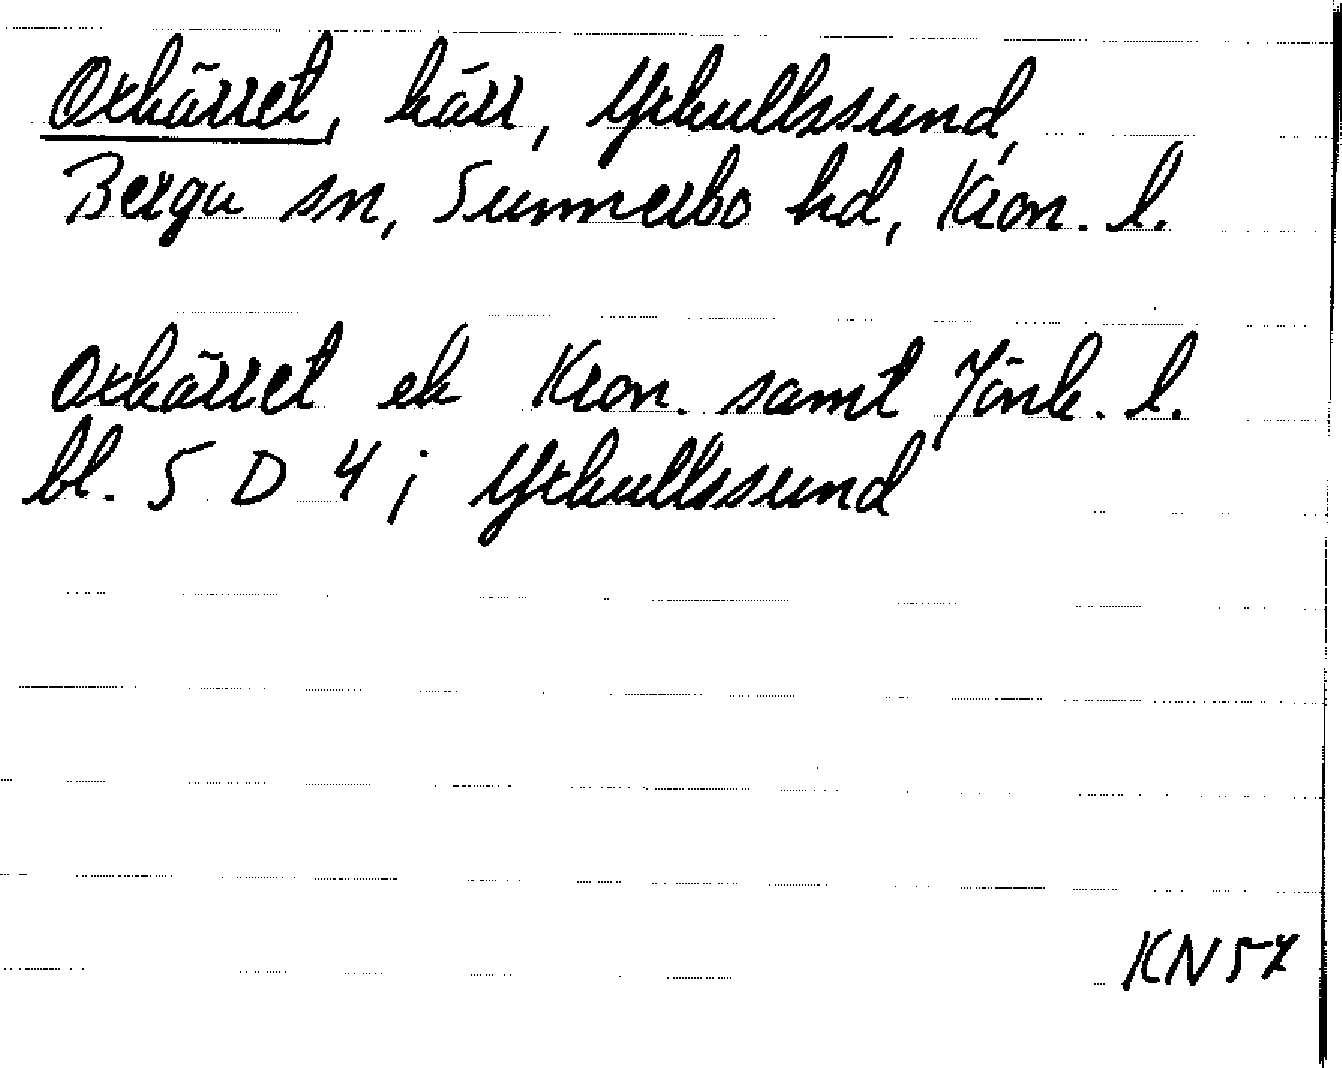 Oxkärret, kärr, Yxkullssund,
Berga sn, Sunnerbo hd, Kron. l.
Oxkärret ek Kron. samt Jönk. l.
bl. 5 D 4 ; Yxkullssund
KN57